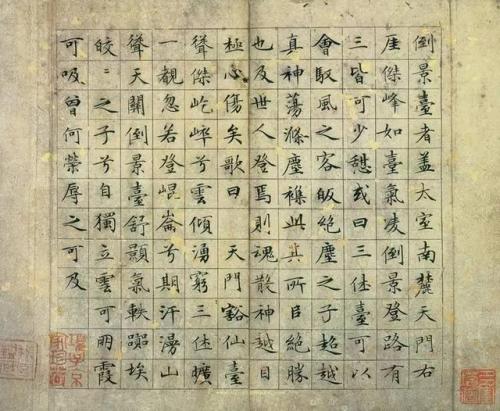 倒景臺者蓋太室南麓天門右
厓傑峰如臺氣凌倒景登路有
三皆可少憩或曰三休臺可以
會馭風之客皈絕塵之子超越
真神蕩滌塵襍此其所臣絕勝
也及世人登焉則魂散神越目
極心傷矣歌曰 天門豁仙臺
聳傑屹崪兮雲傾湧窮三休曠
一覩忽若登崐崙兮期汗漫山
聳天關倒景臺舒顥氣軼嚻埃
皎〻之子兮自獨立雲可朋霞
可吸曾何榮辱之可及